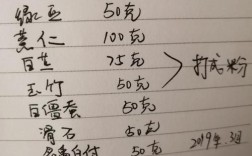 绿豆 50克
薏仁 100克
白芷 75克
玉竹 50克
打成粉
白僵蚕 50克
滑石 50克
白附 50克
2019年3月